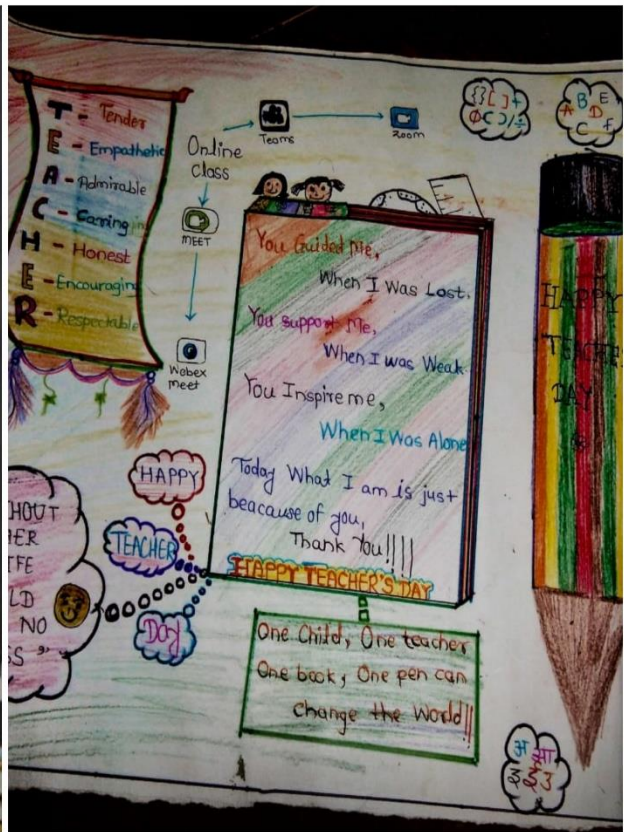 T - Tender
E - Empathetic
A - Admirable
C - Carring
H - Honest
E - Encouraging
R - Respectable
Online
Class
Teams
Zoom
MEET
Webex
meet
{}[]+
A B E
C D F
You Guided Me,
When I Was Lost.
You support Me,
When I was Weak
You Inspire me,
When I Was Alone
Today What I am is just
beacause of you,
Thank You!!!!
HAPPY TEACHER'S DAY
HAPPY
TEACHER
DAY
HOUT
HER
IFE
LD
NO
SS ”
One Child, One teacher
One book, One pen can
change the World!!
HAPPY
TEACHE
DAY
अ आ